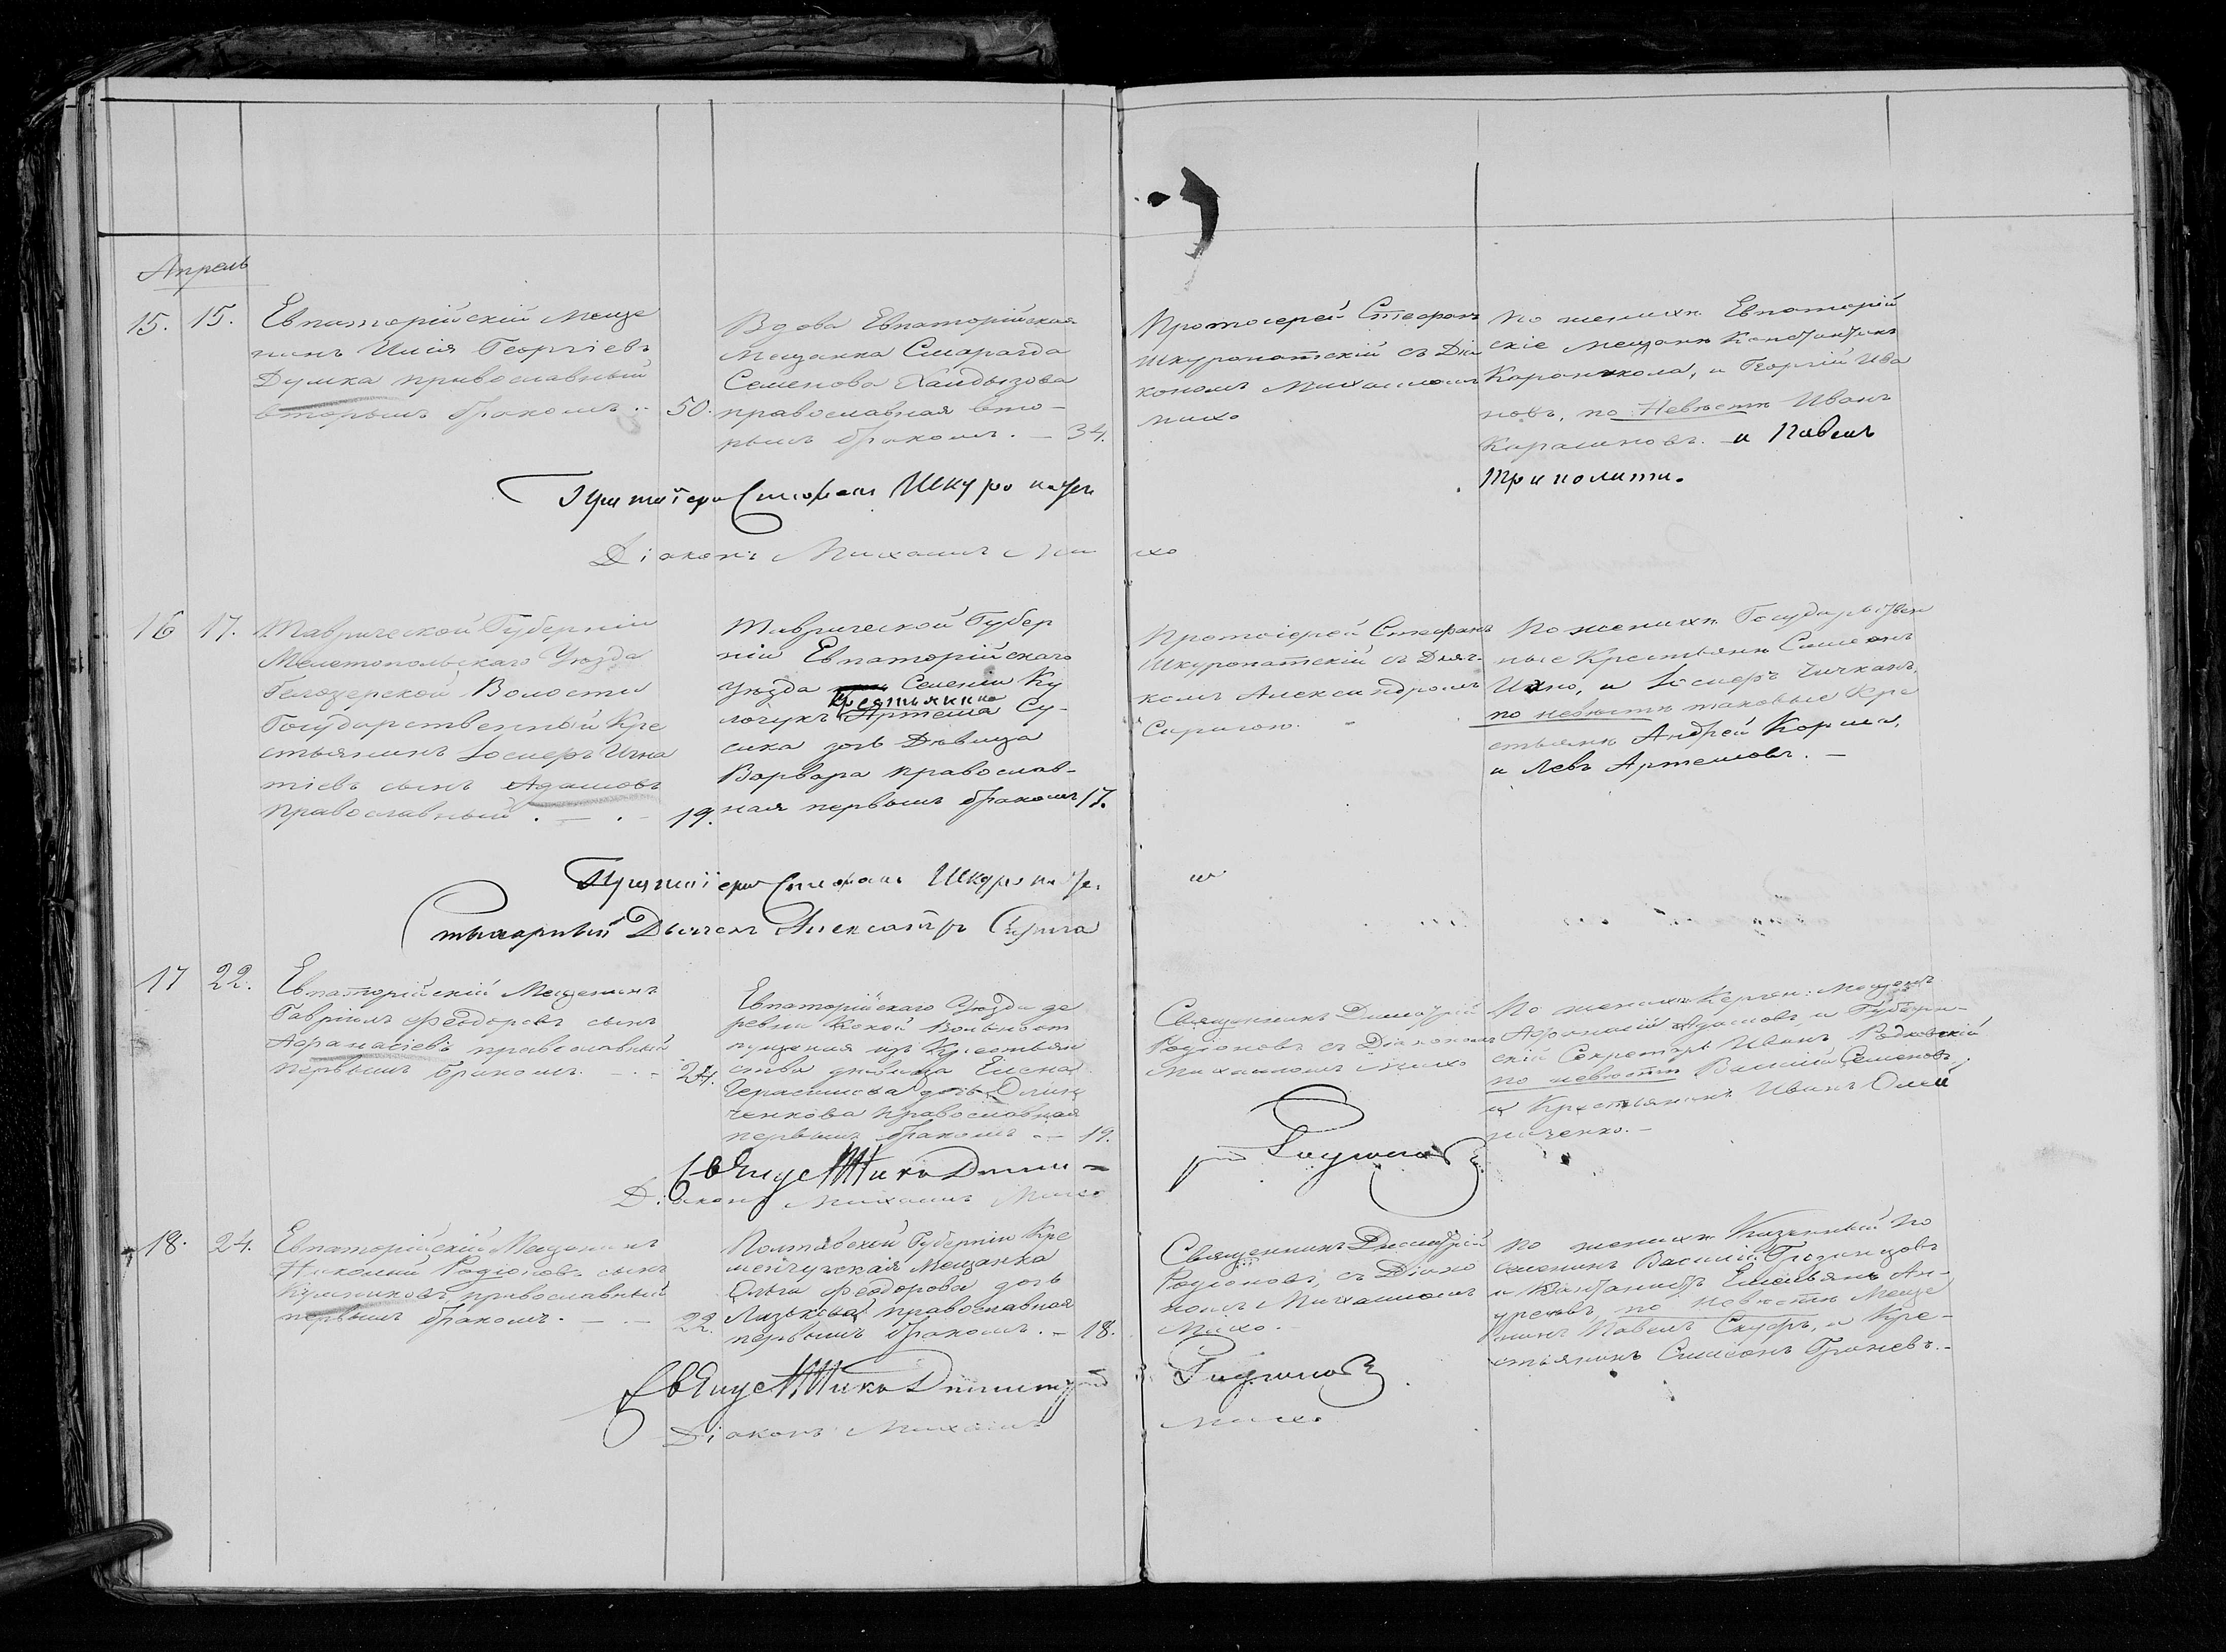 Апрель
15. 15.
Евпаторійскій Меща
нинъ Илія Георгіевъ
Думка православный
вторымъ бракомъ. - 50.
Вдова Евпаторійская
Мещанка Смарагда
Семенова Хандызова
православная вто-
рымъ бракомъ. - 34.
Протоіерей Стефанъ
Шкуропатскій съ Діа
кономъ Михаиломъ
Михо
По женихѣ Евпаторій
скіе мещане Константинъ
и Георгій Ива
новъ, по Невѣстѣ Иванъ
Карамановъ. и Павелъ
Триполити.
Протоіерей Стефанъ Шкуропатскій
Діаконъ Михаилъ Михо
16 17.
Таврической Губерніи
Мелетопольскаго Уѣзда
Волости
Государственный Кре
стьянинъ Іосифъ Игна
тіевъ сынъ Адамовъ
Православный. - . - 19.
Таврической Губер
ніи Евпаторійскаго
уѣзда Селенія Ку
лчукъ Крестьянина Артема Су-
сика дочь Дѣвица
Варвара православ-
ная первымъ бракомъ 17.
Протоіерей Стефанъ
Шкуропатскій съ Дьяч-
комъ Александромъ
По женихѣ Государствен
ные Крестьяне Симеонъ
и Іосифъ Чичканъ,
по невѣстѣ таковые Кре
стьяне Андрей Корма,
и Левъ Артемовъ. -
Протоіерей Стефанъ Шкуропатскій
Дьячекъ Александръ
17 22.
Евпаторійскій Мещанинъ
Гавріилъ Феодоровъ сынъ
Афанасіевъ православный
первымъ бракомъ. - . - 24.
Евпаторійскаго Уѣзда де
ревни Кокой Вольноот
пущенная изъ Крестьян
ства дѣвица Елена
Герасимова дочь
ченкова православная
первымъ бракомъ. - 19.
Священникъ Димитрій
Родіоновъ съ Діакономъ
Михаиломъ Михо
По женихѣ Керчен: Мещан:
Афанасій Адамовъ, и Губерн-
скій Секретарь Иванъ
по невѣстѣ Василій Семеновъ,
и Крестьянинъ Иванъ Омель
ниченко. -
Священникъ Димитрій Родіоновъ
Діаконъ Михаилъ Михо
18. 24.
Евпаторійскій Мещанинъ
Николай Родіоновъ сынъ
православный
первымъ бракомъ. - . - 22.
Полтавской Губерніи Кре
менчугская Мещанка
Ольга Феодорова дочь
православная
первымъ бракомъ. - 18.
Священникъ Димитрій
Родіоновъ, съ Діако
номъ Михаиломъ
Михо. -
По женихѣ Казенный по
селенинъ Василій
и Емельянъ Ан-
по невѣстѣ Меща
нинъ Павелъ и Кре-
стьянинъ Симеонъ
Священникъ Димитрій Родіоновъ
Діаконъ Михаилъ Михо